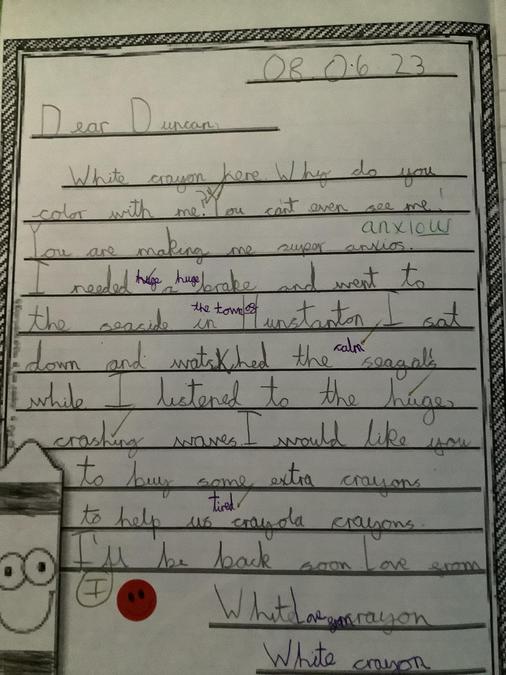 08.06.23
Dear Duncan,
White crayon here. Why do you
color with me? You can't even see me!
anxiou
You are making me super anxios.
I needed a huge brake and went to
the town of
the seaside in Hunstanton. I sat
calm
down and watshed the seagals
while I listened to the huge,
crashing waves. I would like you
to buy some extra crayons
tired
to help us crayola crayons.
I'll be back soon Love erom
I
White crayon
White crayon